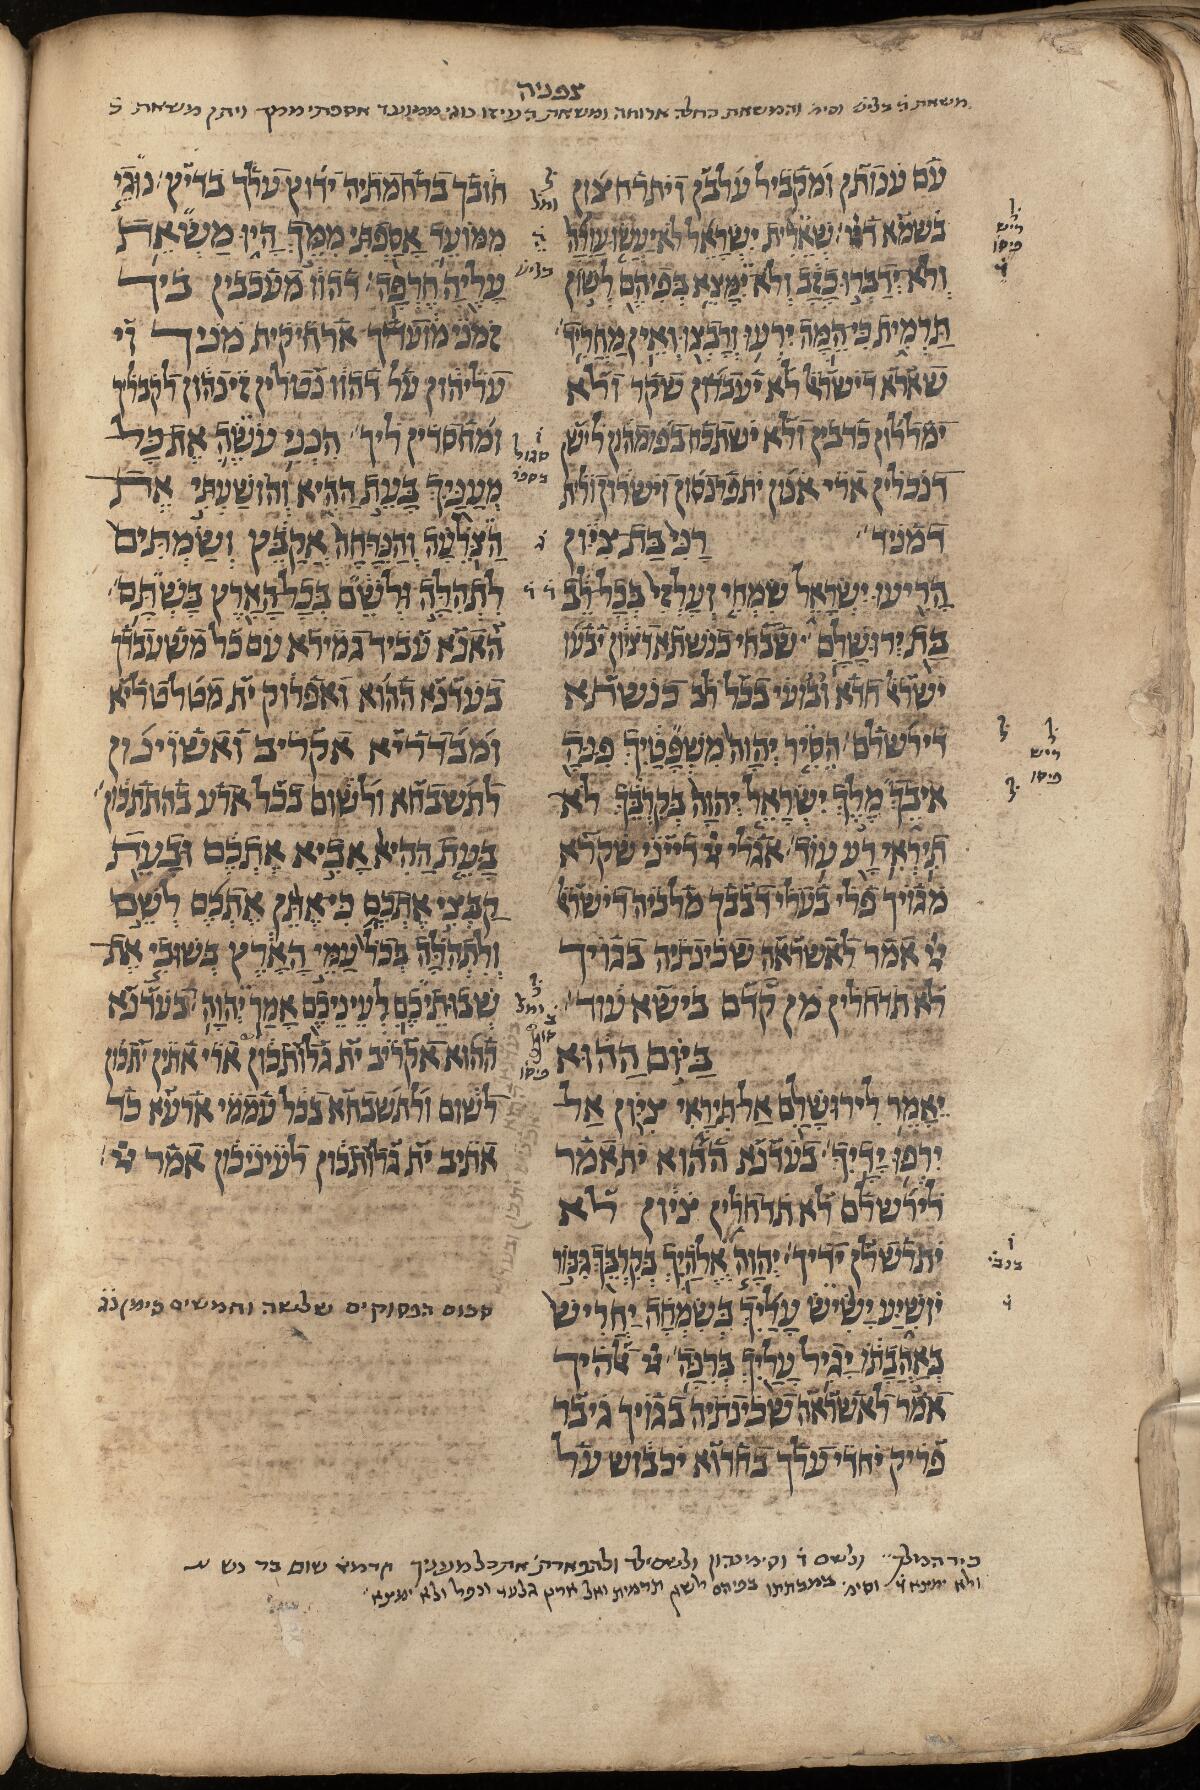 צפניה
משאת ד̇ בציע וסימ והמשאת החלה ארוחה ומשאת העיזו נוגי ממועד אספתי ממך ויתן משאת
עם ענותן ומקביל עלבן ויתרחצון
בשמא דייי שארית ישראל לא יעשו עולה
ולא ידברו כזב ולא ימצא בפיהם לשון
תרמית כי המה ירעו ורבצו ואין מחריד
שארא דישראל לא יעבדון שקר ולא
ימללון כדבין ולא ישתכח בפומהון לישן
דנכלין ארי אנון יתפרנסון וישרון ולית
דמניד רני בת ציון
הריעו ישראל שמחי ועלזי בכל לב
בת ירושלם שבחי כנשתא דציון יבעו
ישראל חדא ובועי בכל לב כנשתא
דירושלם הסיר יהוה משפטיך פנה
איבך מלך ישראל יהוה בקרבך לא
תיראי רע עוד אגלי ייי דייני שקרא
מגויך פלי בעלי דבבך מלכיה דישראל
ייי אמר לאשראה שכינתיה בגויך
לא תדחלין מן קדם בישא עוד
ביום ההוא
יאמר לירושלם אל תיראי ציון אל
ירפו ידיך בעדנא ההוא יתאמר
לירושלם לא תדחלין ציון לא
יתרשלן ידיך יהוה אלהיך בקרבך גבור
יושיע ישיש עליך בשמחה יחריש
באהבתו יגיל עליך ברנה ייי אלהיך
אמר לאשראה שכינתיה בגויך גיבר
פריק יחדי עלך בחדוא יכבוש על
חובך ברחמתיה ידוץ עלך בדיץ נוגי
ממועד אספתי ממך היו משאת
עליה חרפה דהוו מעכבין ביך
זמני מועדך ארחיקית מניך וי
עליהון על דהוו נטלין זינהון לקבליך
ומחסדין ליך הנני עשה את כל
מעניך בעת ההיא והושעתי את
הצלעה והנדחה אקבץ ושמתים
לתהלה ולשם בכל הארץ בשתם
האנא עביד גמירא עם כל משעבדך
בעדנא ההוא ואפרוק ית מטלטליא
ומבדריא אקריב ואשוינון
לתשבחא ולשום בכל ארע בהתתהון
בעת ההיא אביא אתכם ובעת
קבצי אתכם כי אתן אתכם לשם
ולתהלה בכל עמי הארץ בשובי את
שבותיכם לעיניכם אמר יהוה בעדנא
ההוא אקריב ית גלותכון ארי אתין יתכון
לשום ולתשבחא בכל עממי ארעא כד
אתיב ית גלותכון לעיניכון אמר ייי
סכום הפסוקים שלשה וחמשים סימן נג
ולא ימצא וסימ בפיהם לשון תרמית ולא ימצא